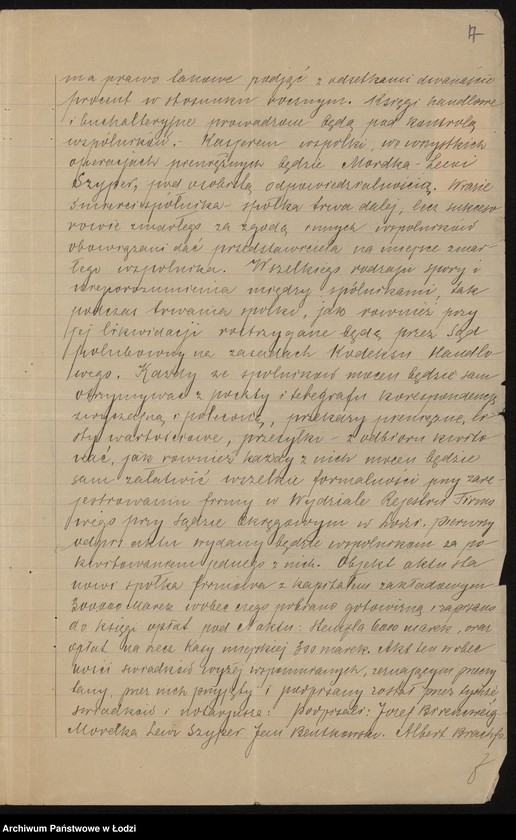 7
ma prawo takowe podjąć z odsetkami dwanaście
procent w stosunku rocznym. Księgi handlowe
i buchalteryjne prowadzone będą pod kontrolą
wspólników. - Kasjerem wspólki, we wszystkich
operacjach pieniężnych będzie Mordka-Lewi
Szyper, pod osobistą odpowiedzialnością. W razie
śmierci wspólnika - spółka trwa dalej, lecz sukceso
rowie zmarłego za zgodą innych wspólników
obowiązani dać przedstawiciela na miejsce zmar
łego wspólnika. Wszelkiego rodzaju spory i
nieporozumienia między spólnikami, tak
podczas trwania spółki, jak również przy
jej likwidacji rozstrzygane będą przez Sąd
Polubowny na zasadach Kodeksu Handlo
wego. Każdy ze spólników mocen będzie sam
otrzymywać z poczty i telegrafu korespondencję
zwyczajną i poleconą, przekazy pieniężne, li
sty wartościowe, przesyłki - z odbioru kwito
wać, jak również każdy z nich mocen będzie
sam załatwić wszelkie formalności przy zare
jestrowaniu firmy w Wydziale Rejestru Firmo
wego przy Sądzie Okręgowym w Łodzi. Pierwszy
odpis aktu wydany będzie wspólnikom za po
kwitowaniem jednego z nich. Objekt aktu sta
nowi spółka firmowa z kapitałem zakładowym
300000 marek wobec czego pobrano gotowizną i zapisano
do księgi opłat pod № aktu: stempla 6000 marek, oraz
opłat na rzecz Kasy miejskiej 300 marek. Akt ten w obec
ności świadków wyżej wspomnianych, zeznającym przeczy
tany, przez nich przyjęty i podpisany został przez tychże,
świadków i notarjusza: Podpisali: Józef Birencweig
Mordka Lewi Szyper Jan Bentkowski. Albert Brach